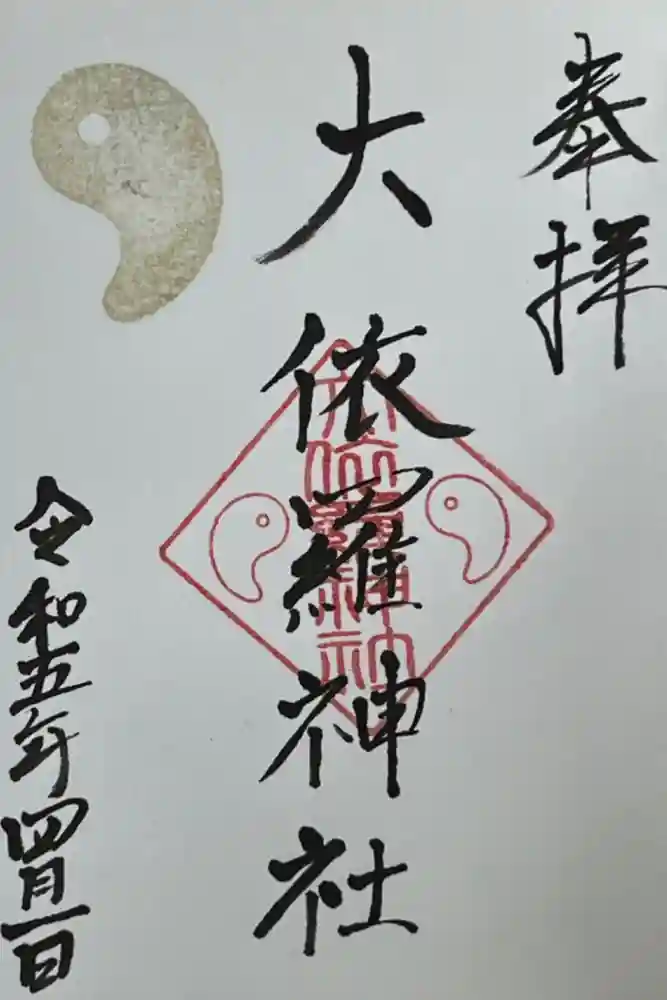 奉拝
大依羅神社
令和五年四月一日